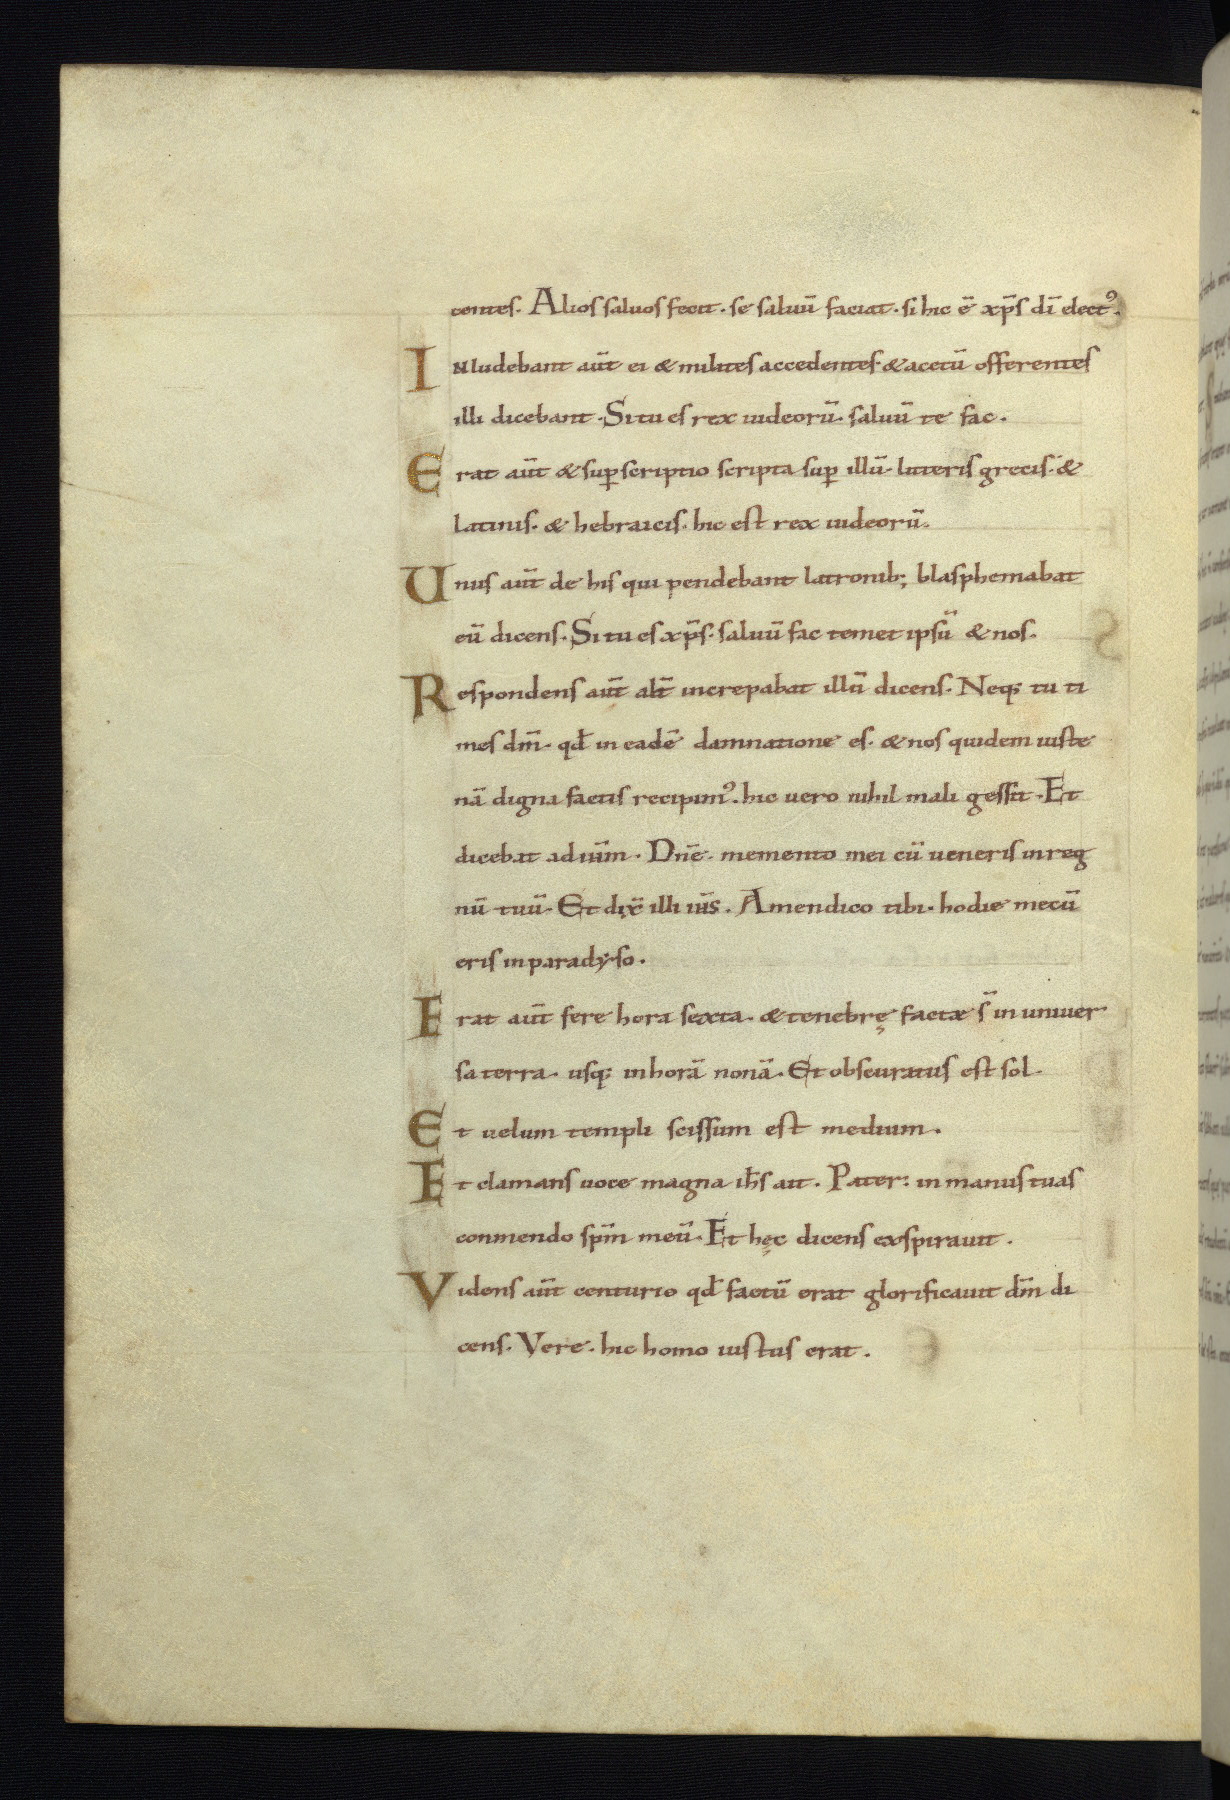 centes. Alios saluos fecit. se saluū faciat. si hic ē xp̄s dī elect᾿.
INludebant aūt ei & milites accedentes. & acetū offerentes
illi dicebant. Si tu es rex iudeorū. saluū te fac.
Erat aūt & sup̱scriptio scripta sup̱ illū. litteris grecis. &
latinis. & hebraicis. hic est rex iudeorū.
Unus aūt de his qui pendebant latronib; blasphemabat
eū dicens. Si tu es xp̄s. saluū fac temet ipsū & nos.
Respondens aūt alt̄ increpabat illū dicens. Neq; tu ti
mes dm̄. qđ in eadē damnatione es. & nos quidem iuste
nā digna factis recipim᾿. hic uero nihil mali gessit. Et
dicebat ad iūm. Dn̄e. memento mei cū ueneris in reg
nū tuū. Et dix̄ illi iūs. Amen dico tibi. hodie mecū
eris in paradyso.
Erat aūt fere hora sexta. & tenebrę factæ s̄ in uniuer
sa terra. usq; in horā nonā. Et obscuratus est sol.
Et uelum templi scissum est medium.
Et clamans uoce magna ih̄s ait. Pater: in manus tuas
conmendo sp̄m meū. Et hęc dicens exspirauit.
Videns aūt centurio qđ factū erat glorificauit dm̄ di
cens. Vere. hic homo iustus erat.